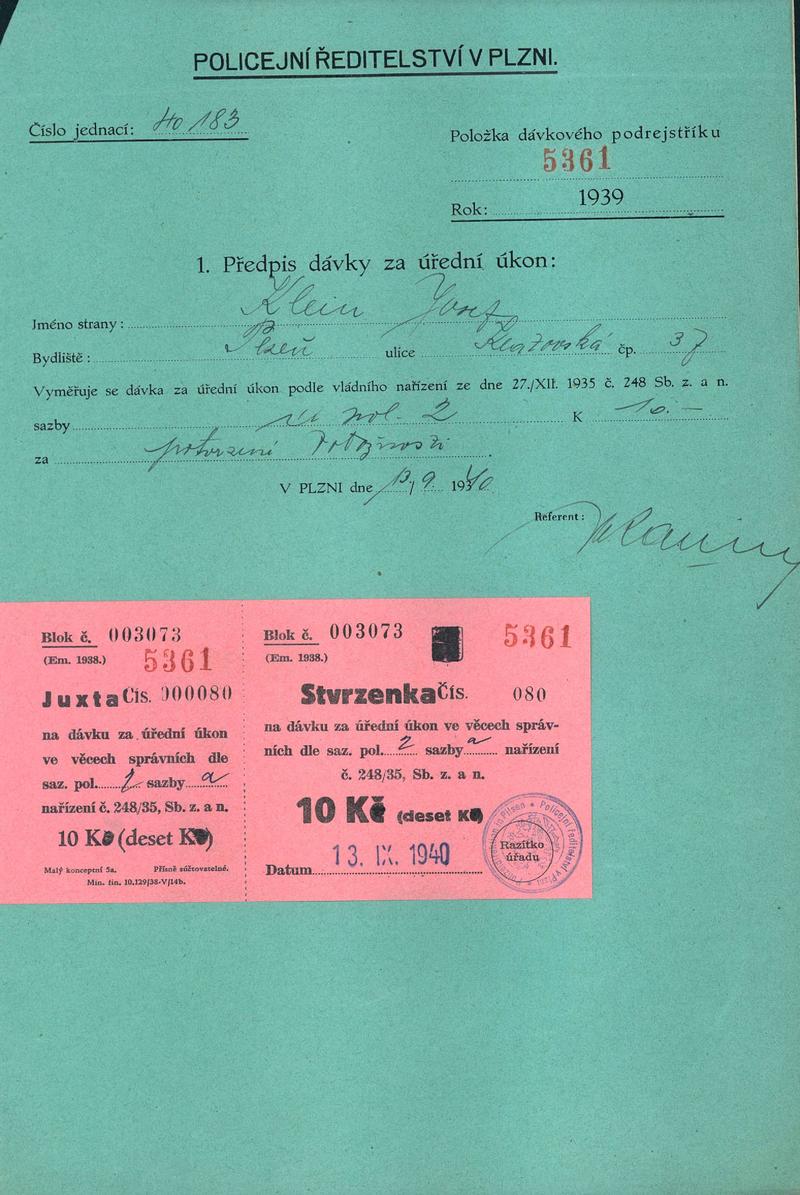 POLICEJNÍ ŘEDITELSTVÍ V PLZNI.
Číslo jednací: 40 183
Položka dávkového podrejstříku
5361
Rok: 1939
1. Předpis dávky za úřední úkon:
Jméno strany: Klein Josef
Bydliště: Plzeň ulice čp. 37
Vyměřuje se dávka za úřední úkon podle vládního nařízení ze dne 27./XII. 1935 č. 248 Sb. z. a n.
sazby pol. 2 K 10.–
za potvrzení totožnosti
V PLZNI dne 13/9. 1940
Referent:
Blok č. 003073
(Em. 1938.) 5361
Juxta Čís. 000080
na dávku za úřední úkon
ve věcech správních dle
saz. pol. 2 sazby a
nařízení č. 248/35, Sb. z. a n.
10 K (deset K)
Malý konceptní 5a. Přísně súčtovatelné.
Min. fin. 10.129/38-V/14b.
Blok č. 003073 5361
(Em. 1938.)
Stvrzenka Čís. 080
na dávku za úřední úkon ve věcech správ-
ních dle saz. pol. 2 sazby a nařízení
č. 248/35, Sb. z. a n.
10 Kč (deset K)
Datum 13. IX. 1940
Razítko
úřadu
Polizeidirektion in Pilsen * Policejní ředitelství v Plzni *